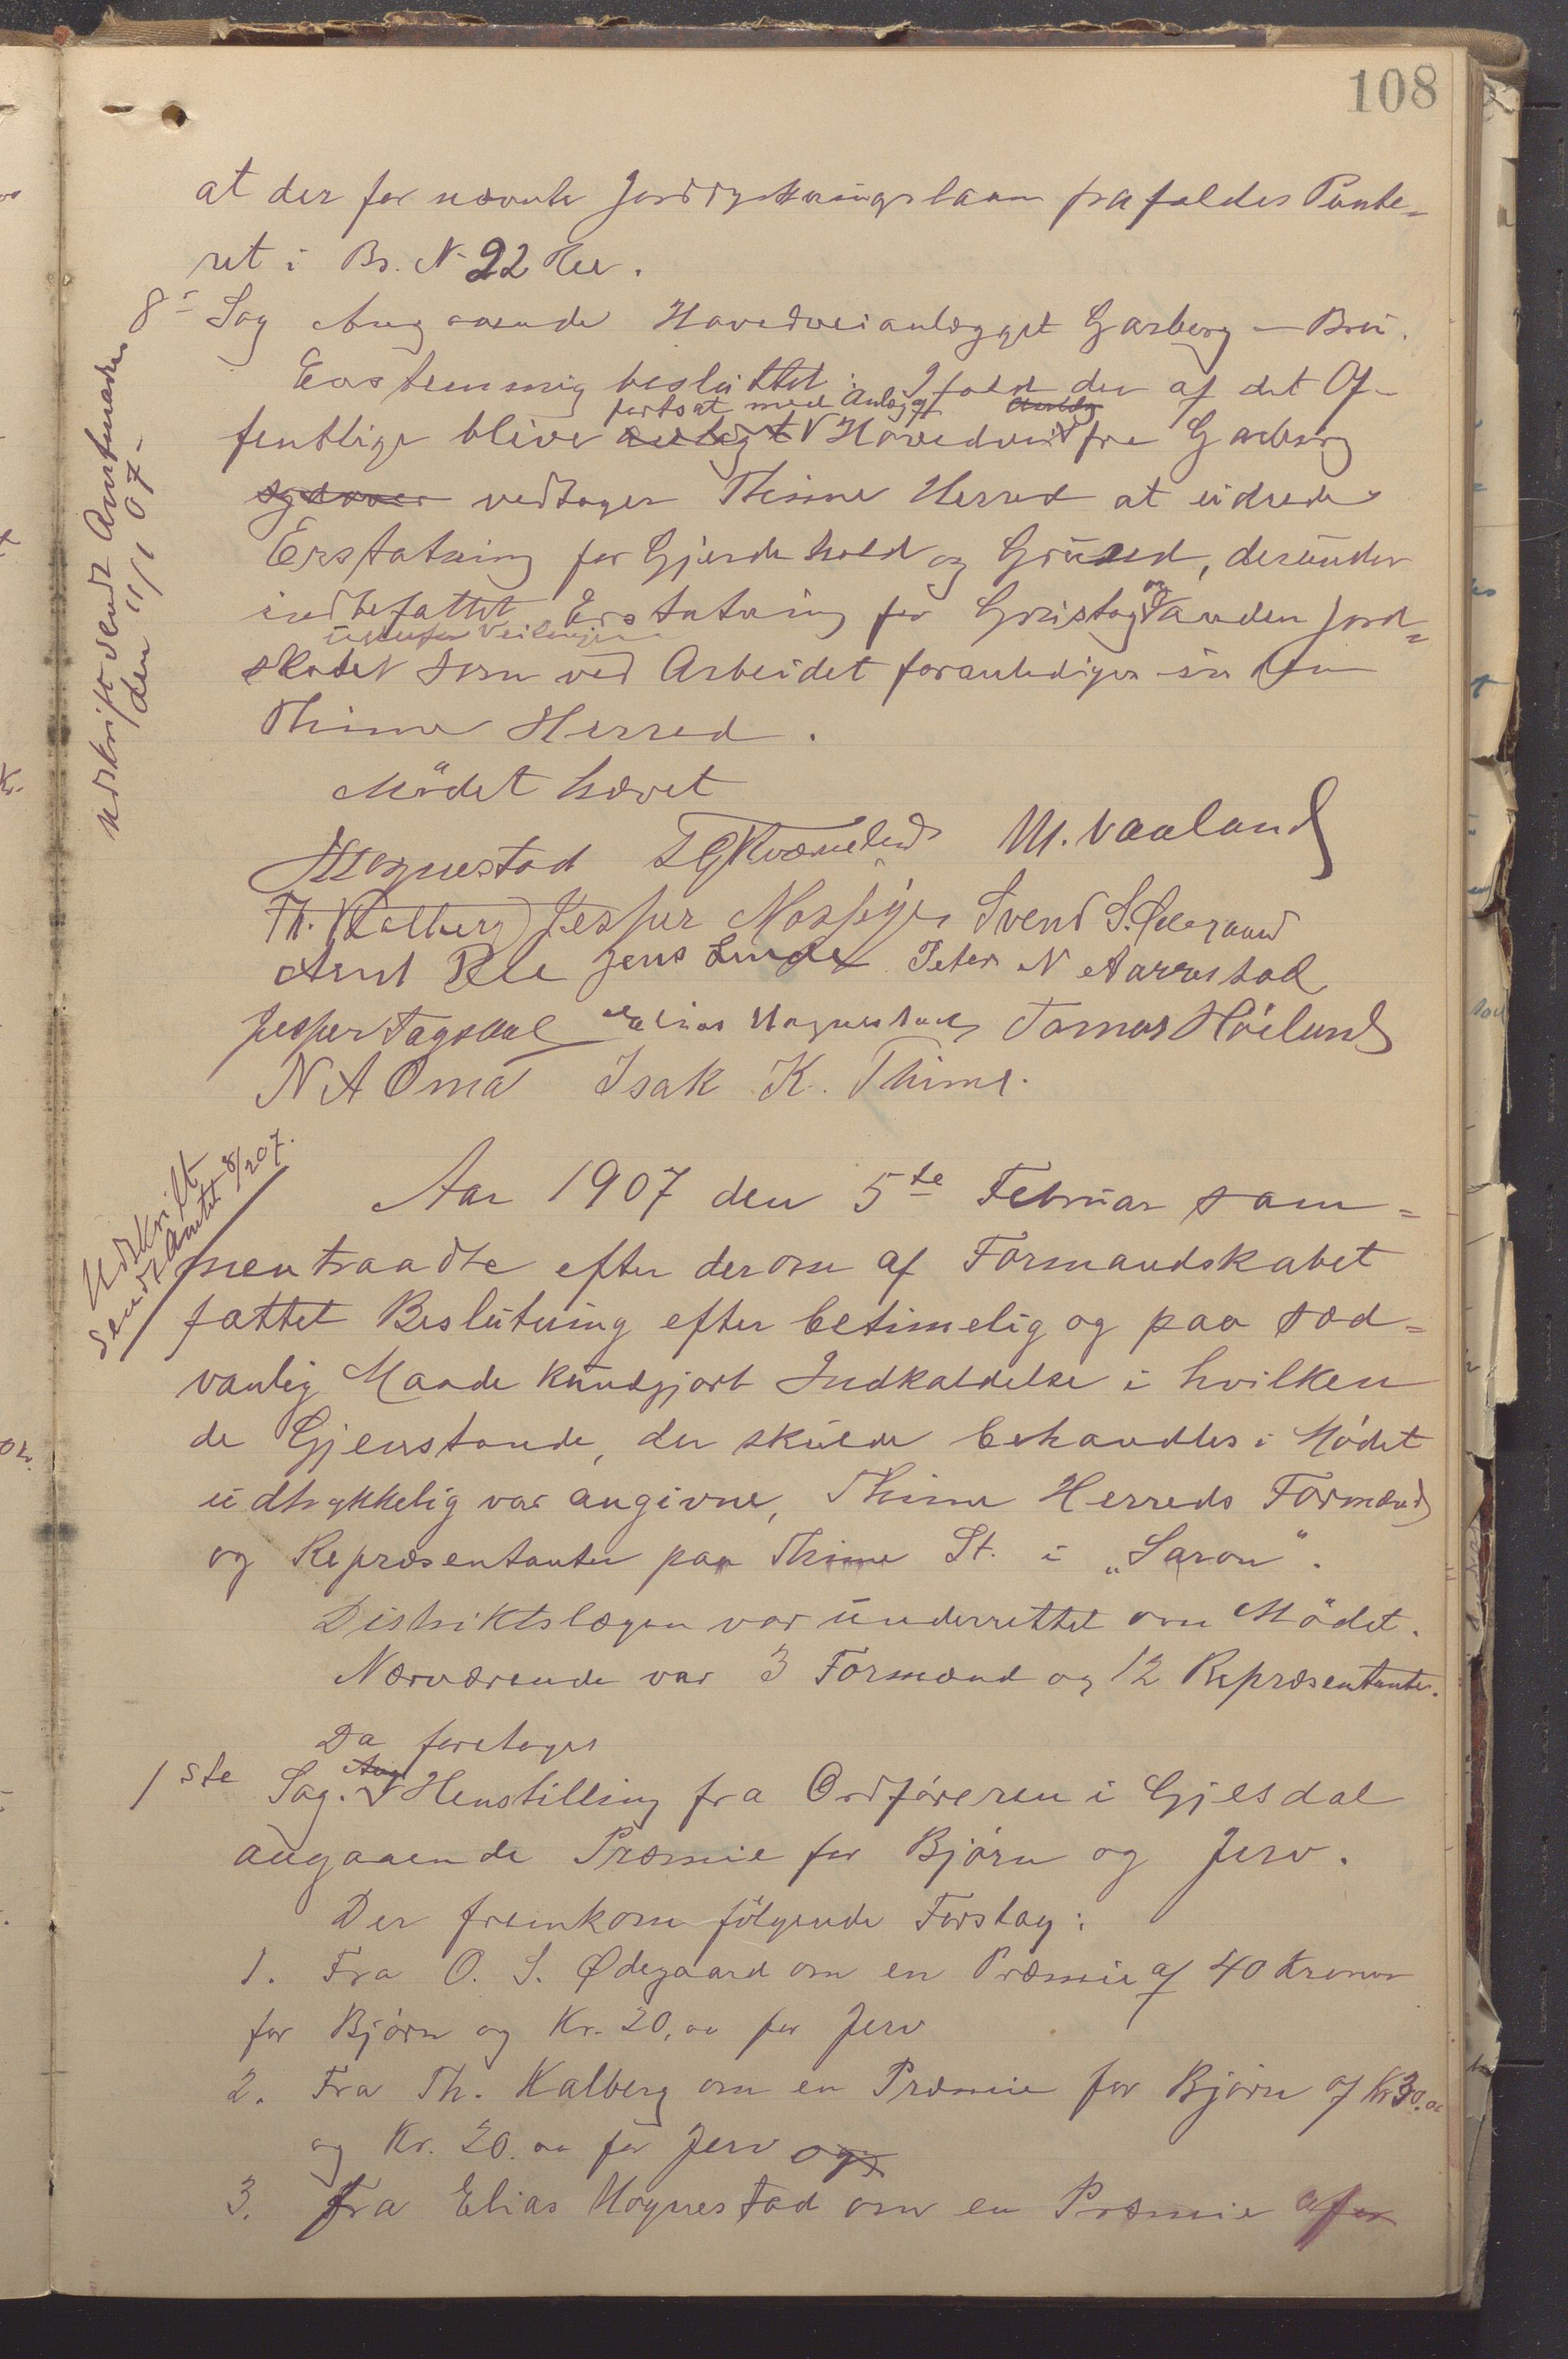 108
at der for nævnte Jorddyrkningslaan frafaldes Pante-
ret i Br. N. 22 Ree.
8- Sag Angaaende Hovedveianlægget Garborg - Bru.
Enstemmig besluttet: Ifald der af det Of-
fortsat med Anlægget Anlæg
fentlige blive anlagt Hovedvei fra Garborg
vedtager Thime Herred at udrede
Erstatning for Gjerdehold og Grund, derunder
indbefattet Erstatning for Grustag og anden Jord-
udenfor Veilinjen
skade som ved Arbeidet foranlediges inden
Thime Herred.
Mödet hævet
Udskrift sendt Amtmanden
den 11/1 07-
Hognestad M. Vaaland
Th. Kalberg Jesper Mossige Svend S.
Arnt Ree Jens Lende Peter N Aarrestad
Jesper Tagsdal Elias Hognestad Tomas Höiland
N A Oma Isak K. Thime.
Udskrift
sendt Amtet 8/2 07.
Aar 1907 den 5te Februar sam=
mentraadte efter derom af Formandskabet
fattet Beslutning efter betimelig og paa sæd=
vanlig Maade kundgjort Indkaldelse i hvilken
de Gjenstande, der skulde behandles i Mödet
udtrykkelig var angivne, Thime Herreds Formænd
og Repræsentanter paa Thime St. i "Saron".
Distriktslægen var underrettet om Mödet.
Nærværende var 3 Formænd og 12 Repræsentanter.
Da foretoges
1ste Sag. Ang Henstilling fra Ordföreren i Gjesdal
angaaende Præmie for Björn og Jerv.
Der fremkom fölgende Forslag:
1. Fra O. S. Ødegaard om en Præmie af 40 Kroner
for Björn og Kr. 20,00 for Jerv
2. Fra Th. Kalberg om en Præmie for Björn af Kr 30.00
og Kr. 20.00 for Jerv og
3. Fra Elias Hognestad om en Præmie af